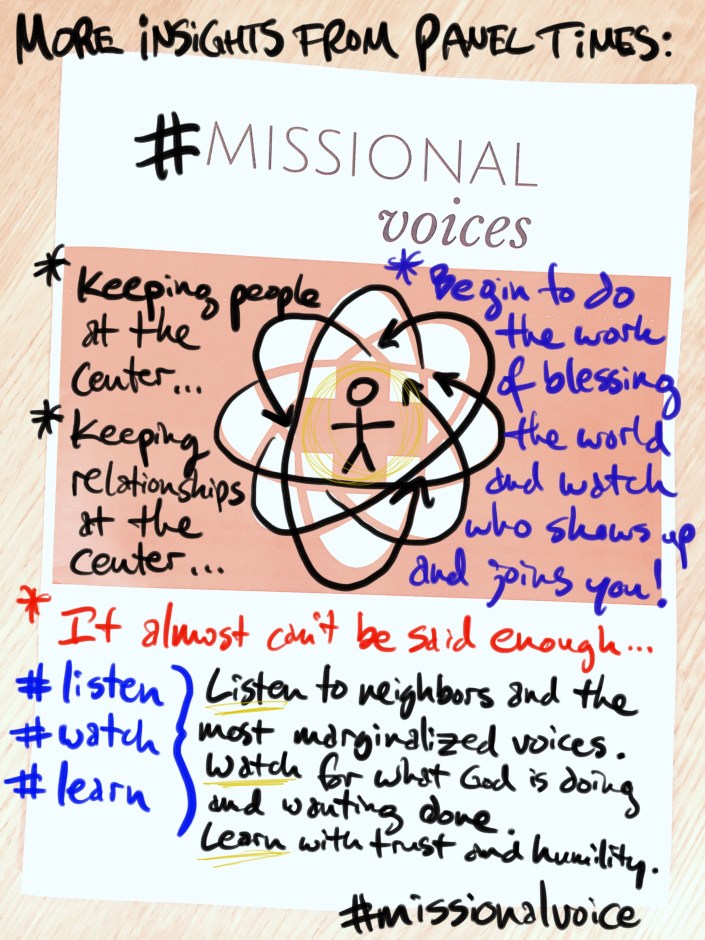 MORE INSIGHTS FROM PANEL TIMES:
#MISSIONAL
voices
* Keeping people
at the
center...
* Keeping
relationships
at the
center...
* Begin to do
the work
of blessing
the world
and watch
who shows up
and joins you!
* It almost can't be said enough...
# listen
# watch
# learn
Listen to neighbors and the
most marginalized voices.
Watch for what God is doing
and wanting done.
Learn with trust and humility.
#missionalvoice